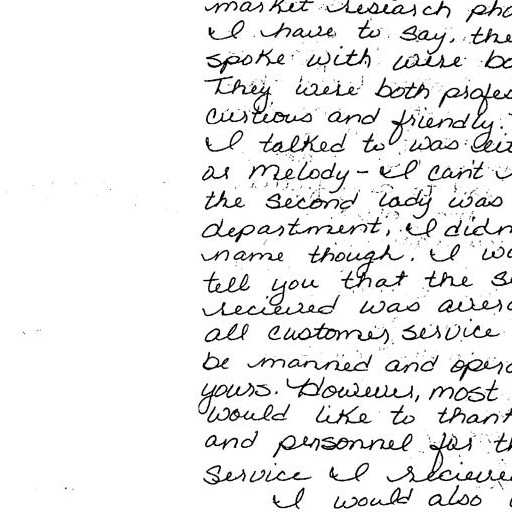 market research pho
I have to say, the
spoke with were bo
They were both profes
curteous and friendly.
I talked to was eit
as Melody - I can't
the second lady was
department, I didn
name though. I wo
tell you that the se
recieved was
all customer service
be manned and opera
yours. However, most
would like to thank
and personnel for th
service I recieve
I would also